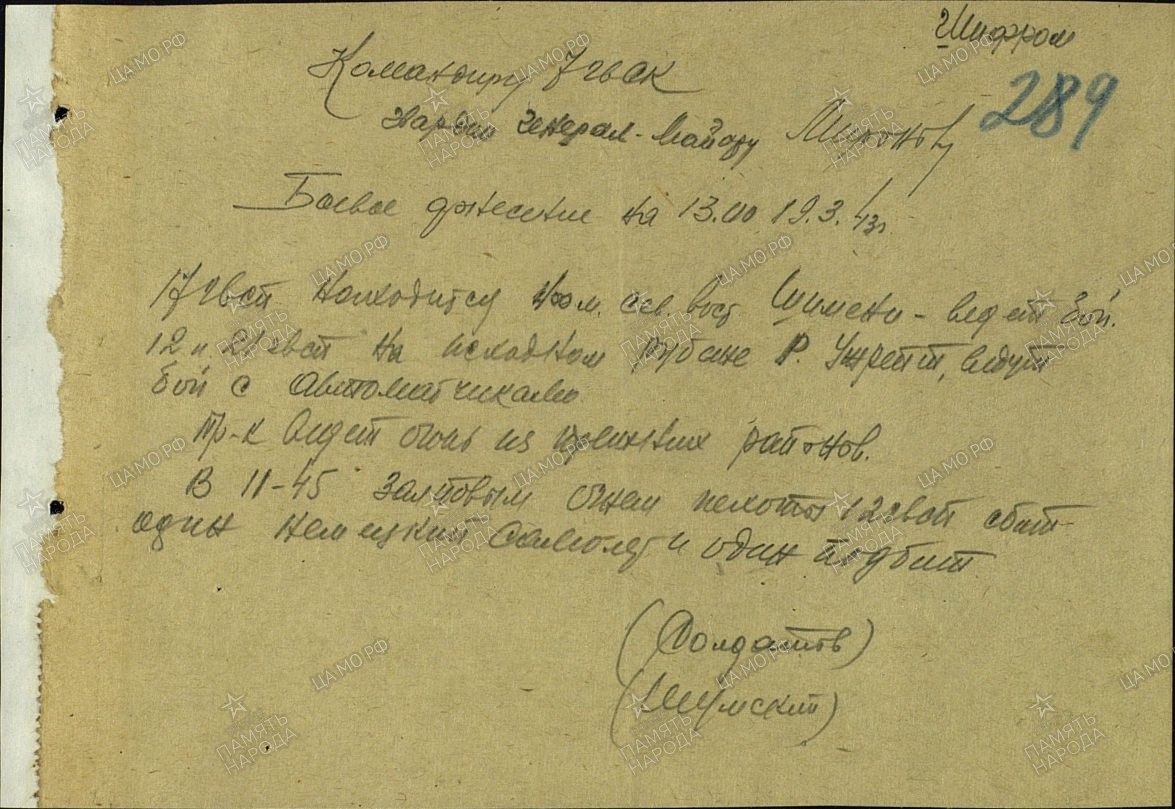 Шифром
289
Командиру 7 гвСК
Гвардии Генерал-Майору Миронову
Боевое донесение на 13.00 19.3.43г
17 гвсп находится сев. вост. Шимени - ведет бой.
12 и 21 гвсп на исходном рубеже р. Ужрепт, ведут
бой с автоматчиками
Пр-к ведет огонь из прежних районов.
В 11-45 залповым огнем пехоты 12 гвсп сбит
один немецкий самолет и один подбит
(Солдатов)
(Шумский)
ЦАМО.РФ
ПАМЯТЬ НАРОДА